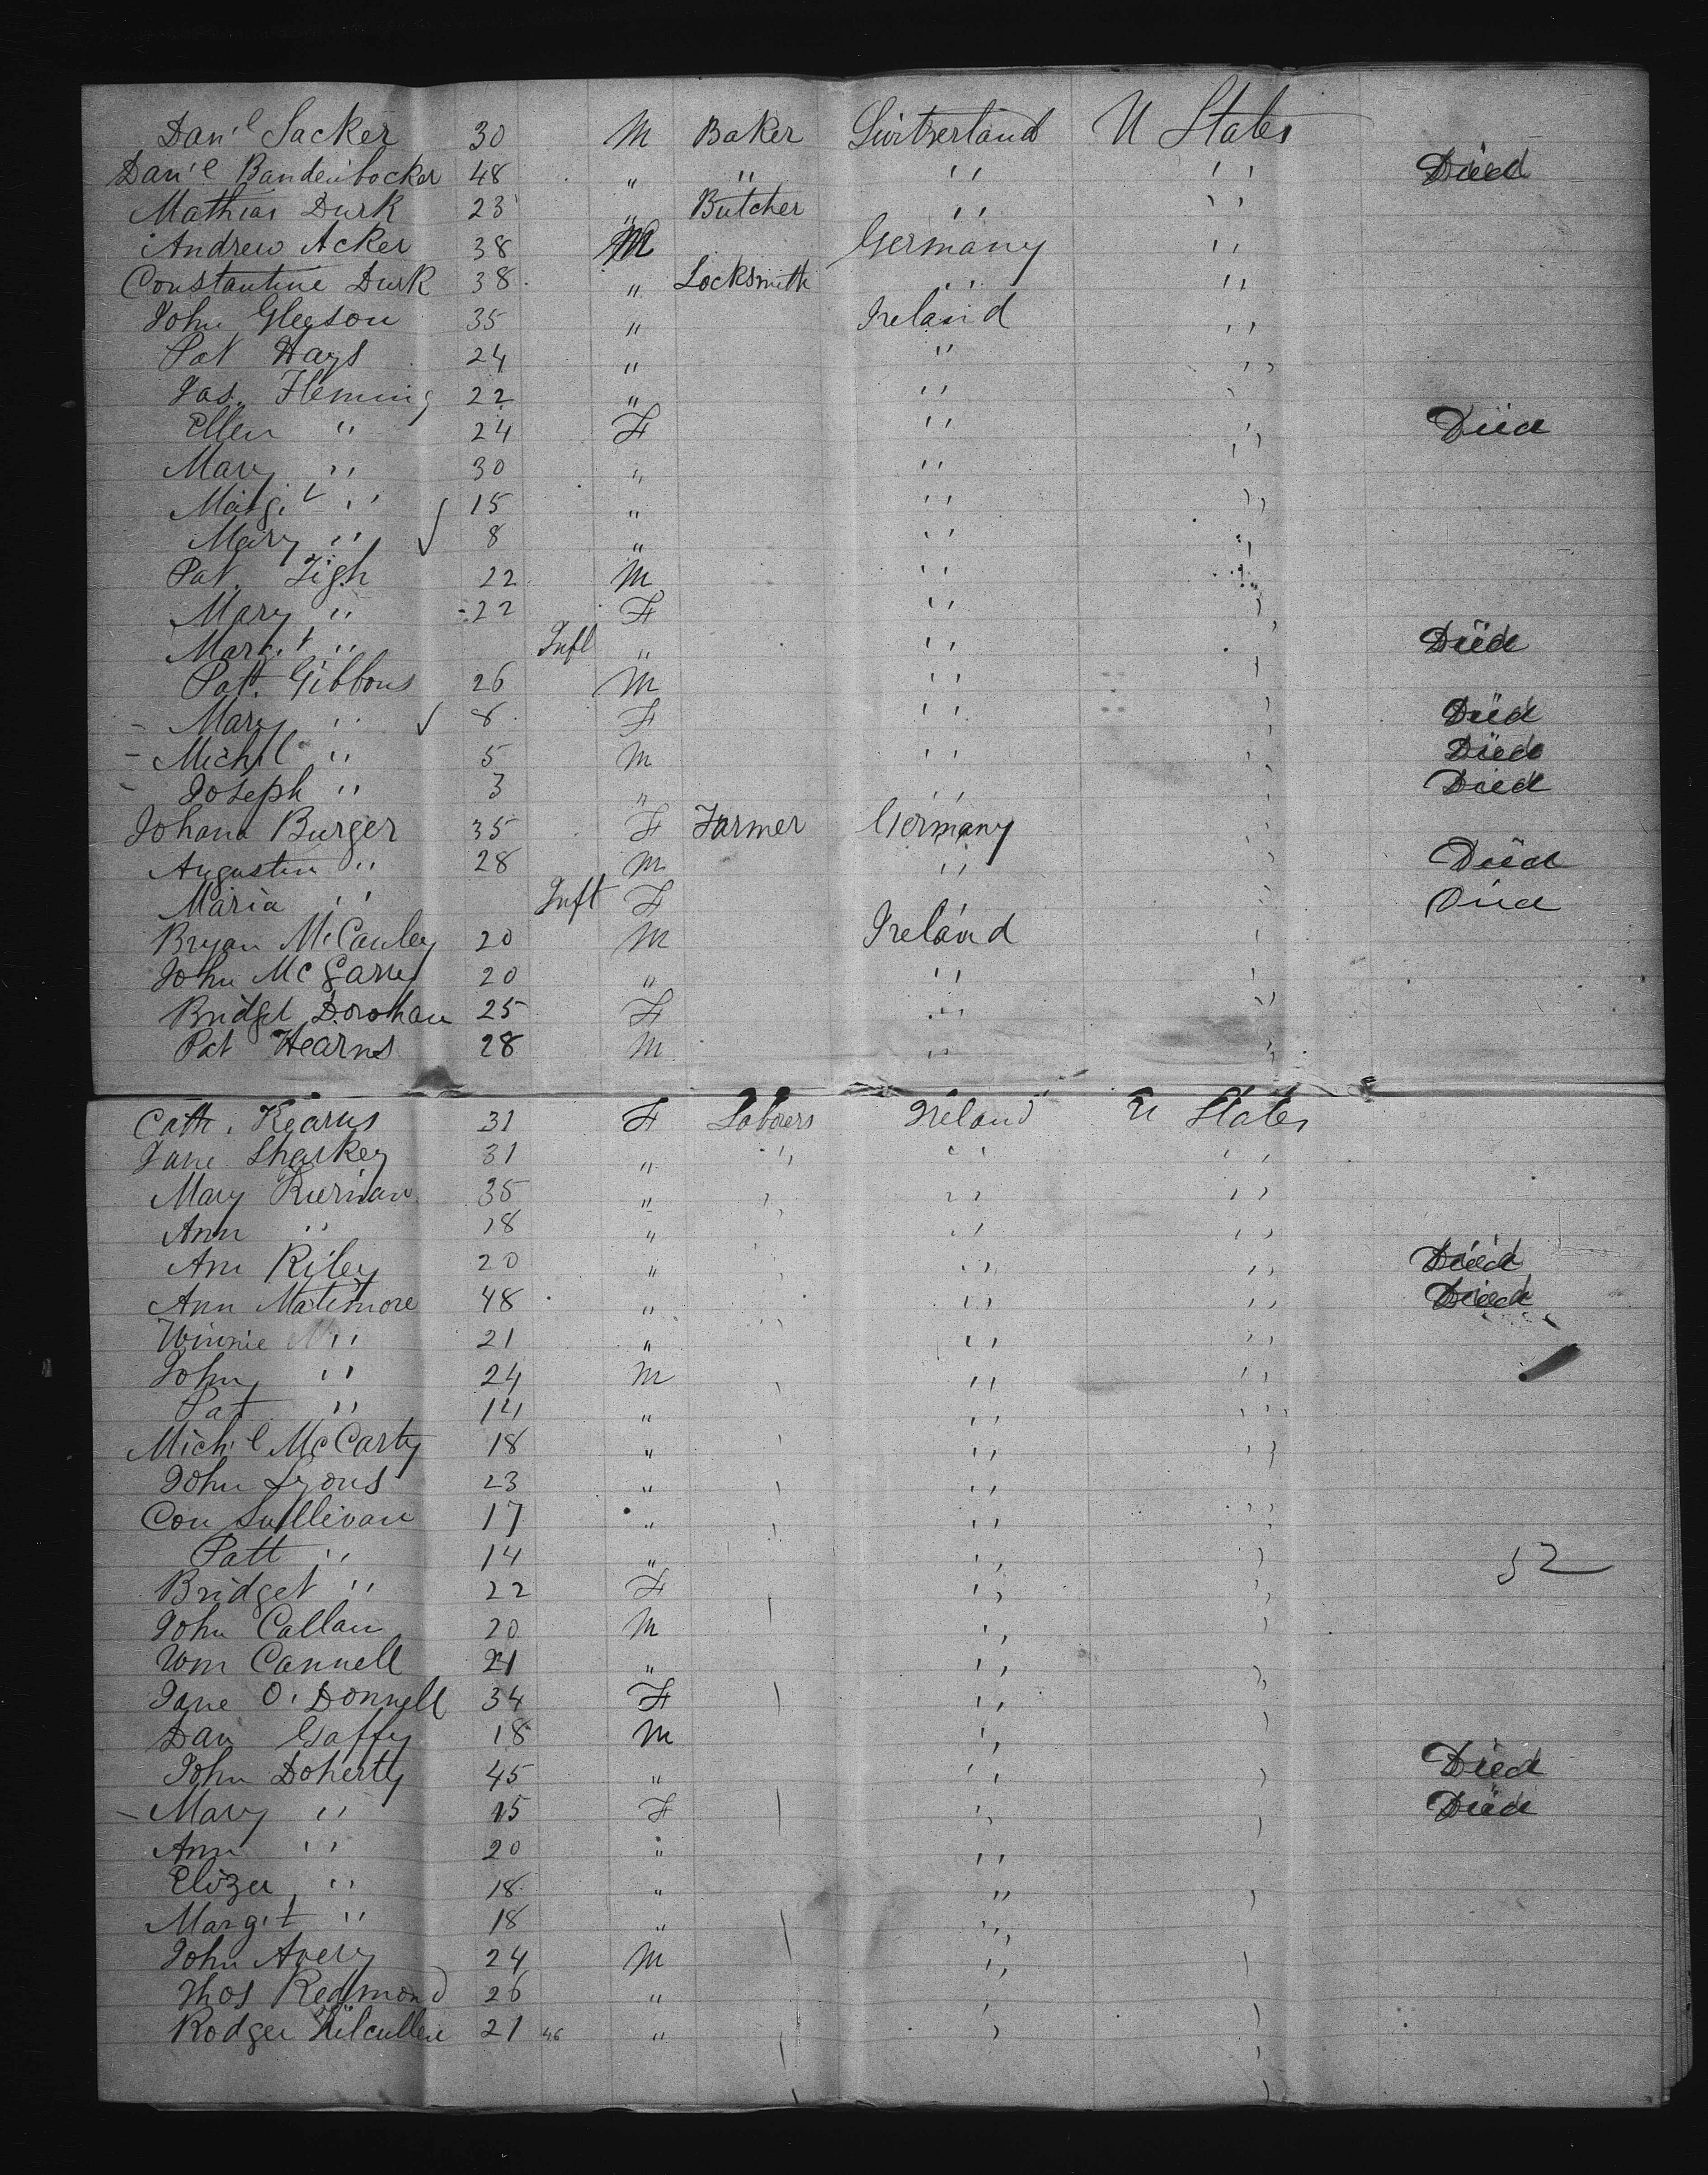 Dan'l Sacker 30 M Baker Switzerland U States
Dan'l Bandenbocker 48 " " " " Died
Mathias Durk 23 " Butcher " "
Andrew Acker 38 M Germany "
Constantine Durk 38 " Locksmith " "
John Gleason 35 " Ireland "
Pat Hays 24 " " "
Jas. Fleming 22 " " "
Ellen " 24 F " " Died
Mary " 30 " " "
Marg.t " 15 " " "
Mary " √ 8 " " "
Pat. Tigh 22 M " "
Mary " 22 F " "
Marg.t " Inft " " " Died
Patt. Gibbons 26 M " "
- Mary " √ 8 F " " Died
- Mich'l " 5 M " " Died
- Joseph " 3 " " " Died
Johana Burger 35 F Farmer Germany "
Augustin " 28 M " " Died
Maria " Inft F " " Died
Bryan McCauley 20 M Ireland "
John McGarry 20 " " "
Bridget Dorohan 25 F " "
Pat Hearns 28 M " "
Cath. Kearns 31 F Laborers Ireland U States
Jane Sharkey 31 " " " "
Mary Kiernan 35 " " " "
Ann " 18 " " "
Ann Riley 20 " " " " Died
Ann Matimore 48 " " " Died
Winnie " 21 " " " "
John " 24 M " " "
Pat " 14 " " "
Mich'l McCarty 18 " " " "
John Lyons 23 " " " "
Con Sullivan 17 " " " "
Patt " 14 " " " 52
Bridget " 22 F " "
John Callan 20 M " " "
Wm Cannell 21 " " "
Jane O'Donnell 34 F " " "
Dan Gaffy 18 M " "
John Doherty 45 " " " Died
- Mary " 15 F " " " Died
Ann " 20 " "
Eliza " 18 " " "
Marg.t " 18 " " "
John Avery 24 M " "
Thos Redmond 26 " "
Rodger Kilcullen 21 46 " " "